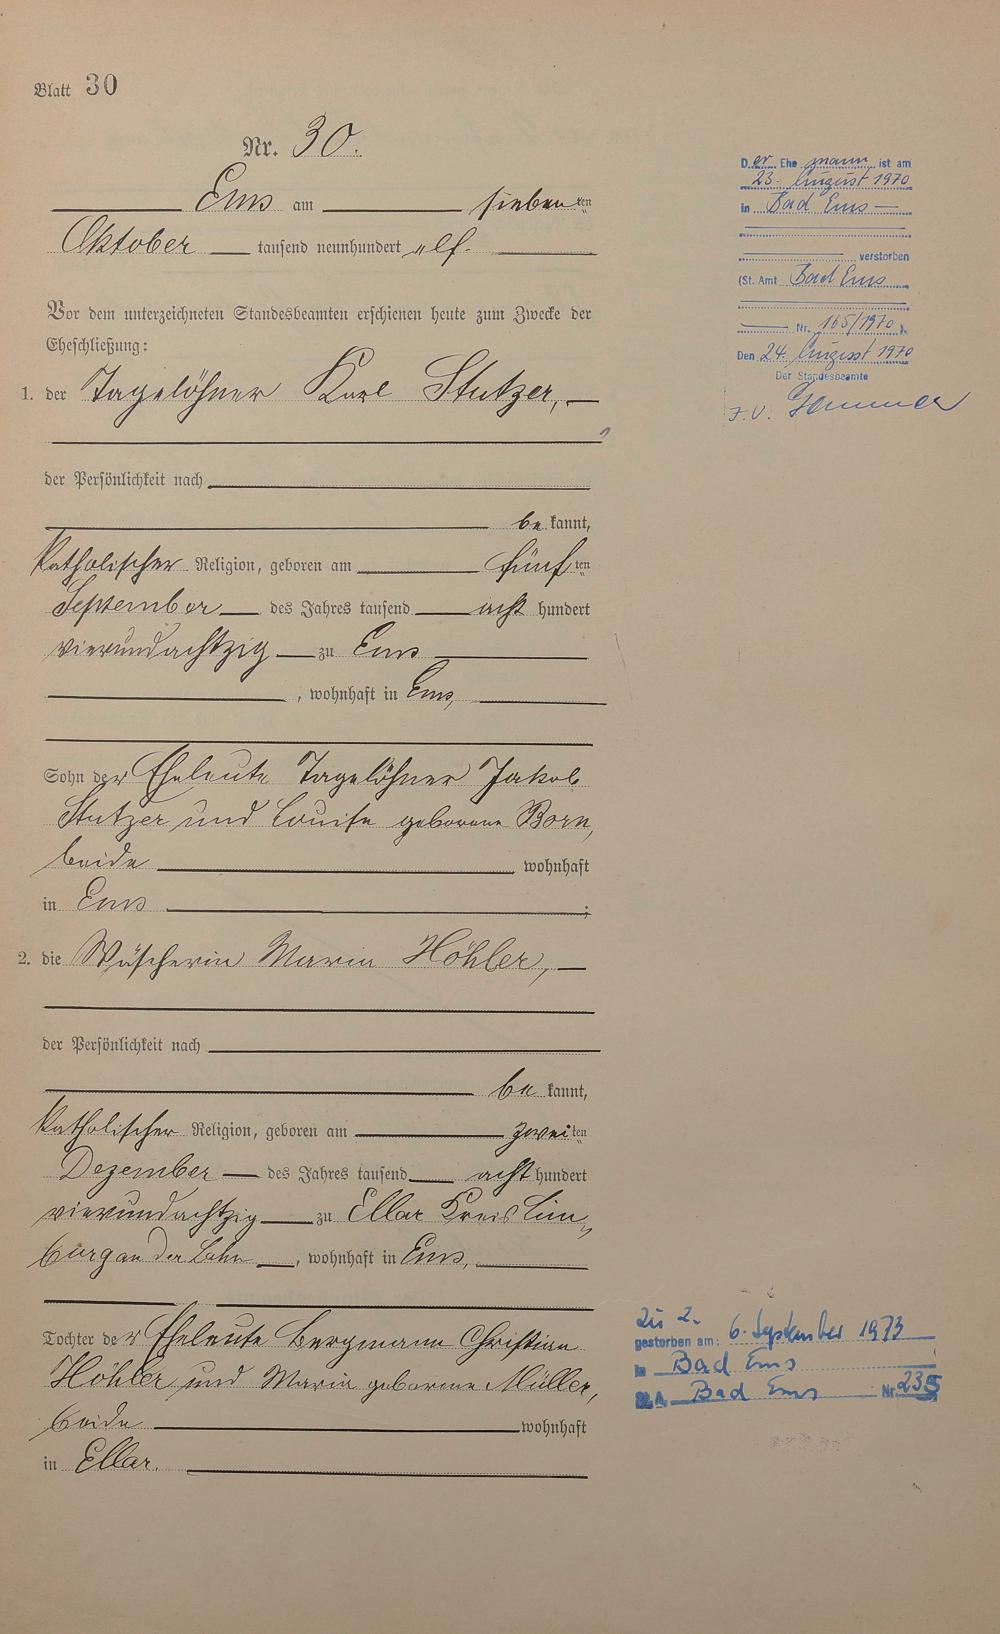 Blatt 30
Nr. 30.
Ems am sieben ten
Oktober tausend neunhundert elf.
Vor dem unterzeichneten Standesbeamten erschienen heute zum Zwecke der
Eheschließung:
1. der Tagelöhner Karl Stutzer,
der Persönlichkeit nach
be kannt,
katholischer Religion, geboren am fünf ten
September des Jahres tausend acht hundert
vierundachtzig zu Ems
, wohnhaft in Ems,
Sohn der Eheleute Tagelöhner Jakob
Stutzer und Louise geborene Born,
beide wohnhaft
in Ems ;
2. die Wäscherin Maria Höhler,
der Persönlichkeit nach
be kannt,
katholischer Religion, geboren am zwei ten
Dezember des Jahres tausend acht hundert
vierundachtzig zu Ellar Kreis Lim„
burg an der Lahn, wohnhaft in Ems,
Tochter der Eheleute Bergmann Christian
Höhler und Maria geborene Müller,
beide wohnhaft
in Ellar.
Der Ehe mann ist am
23. August 1970
in Bad Ems
verstorben
(St. Amt Bad Ems
Nr. 165/1970).
Den 24. August 1970
Der Standesbeamte
J.V.
Zu 2.
gestorben am: 6. September 1973
in Bad Ems
St.A. Bad Ems Nr 235